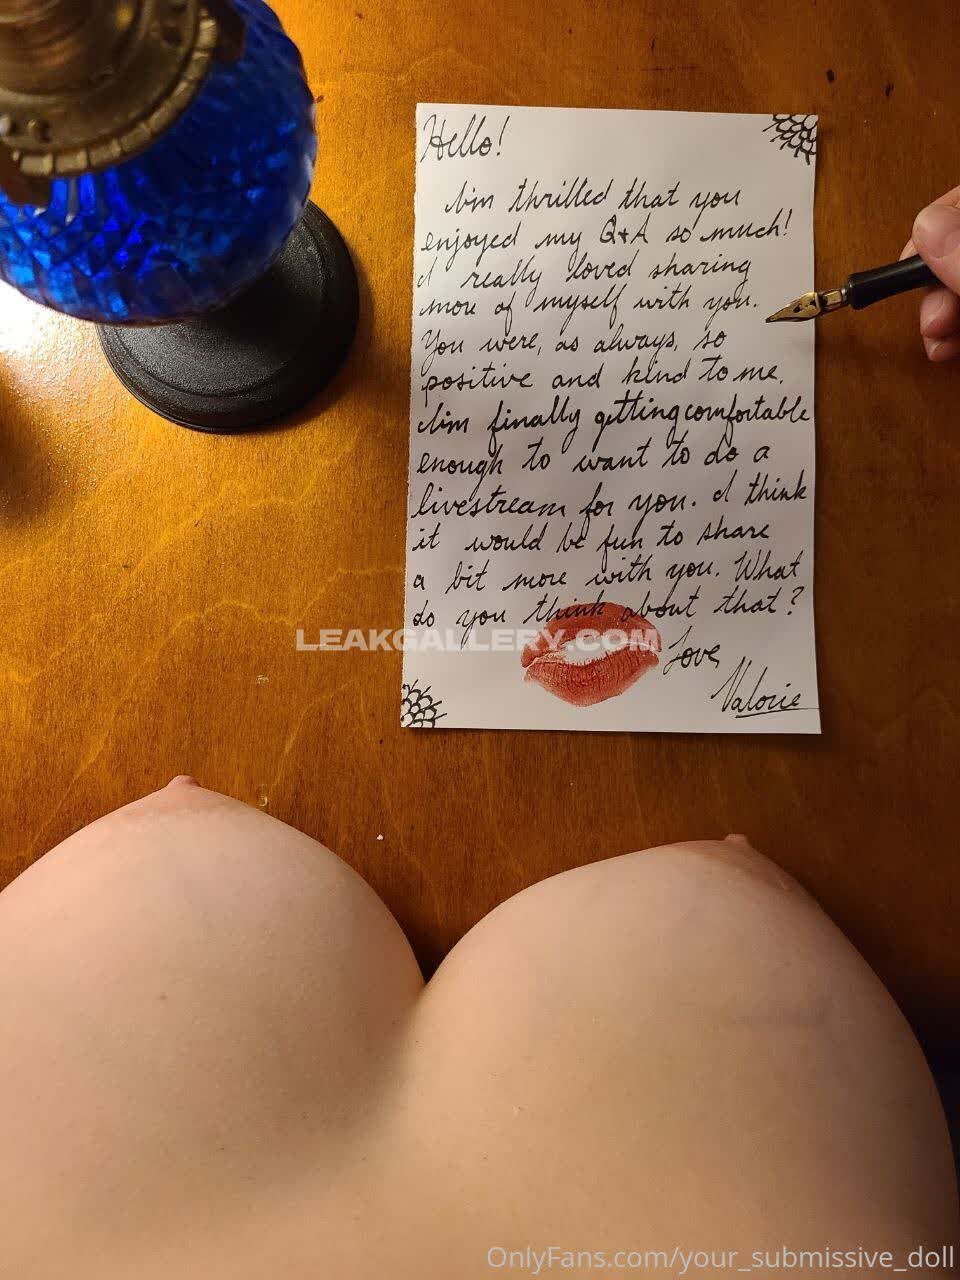 Hello!
I'm thrilled that you
enjoyed my Q&A so much!
I really loved sharing
more of myself with you.
You were, as always, so
positive and kind to me.
I'm finally getting comfortable
enough to want to do a
livestream for you. I think
it would be fun to share
a bit more with you. What
do you think about that?
LEAKGALLERY.COM
Love
Valorie
OnlyFans.com/your_submissive_doll